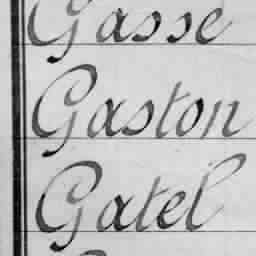 Gasse
Gaston
Gatel